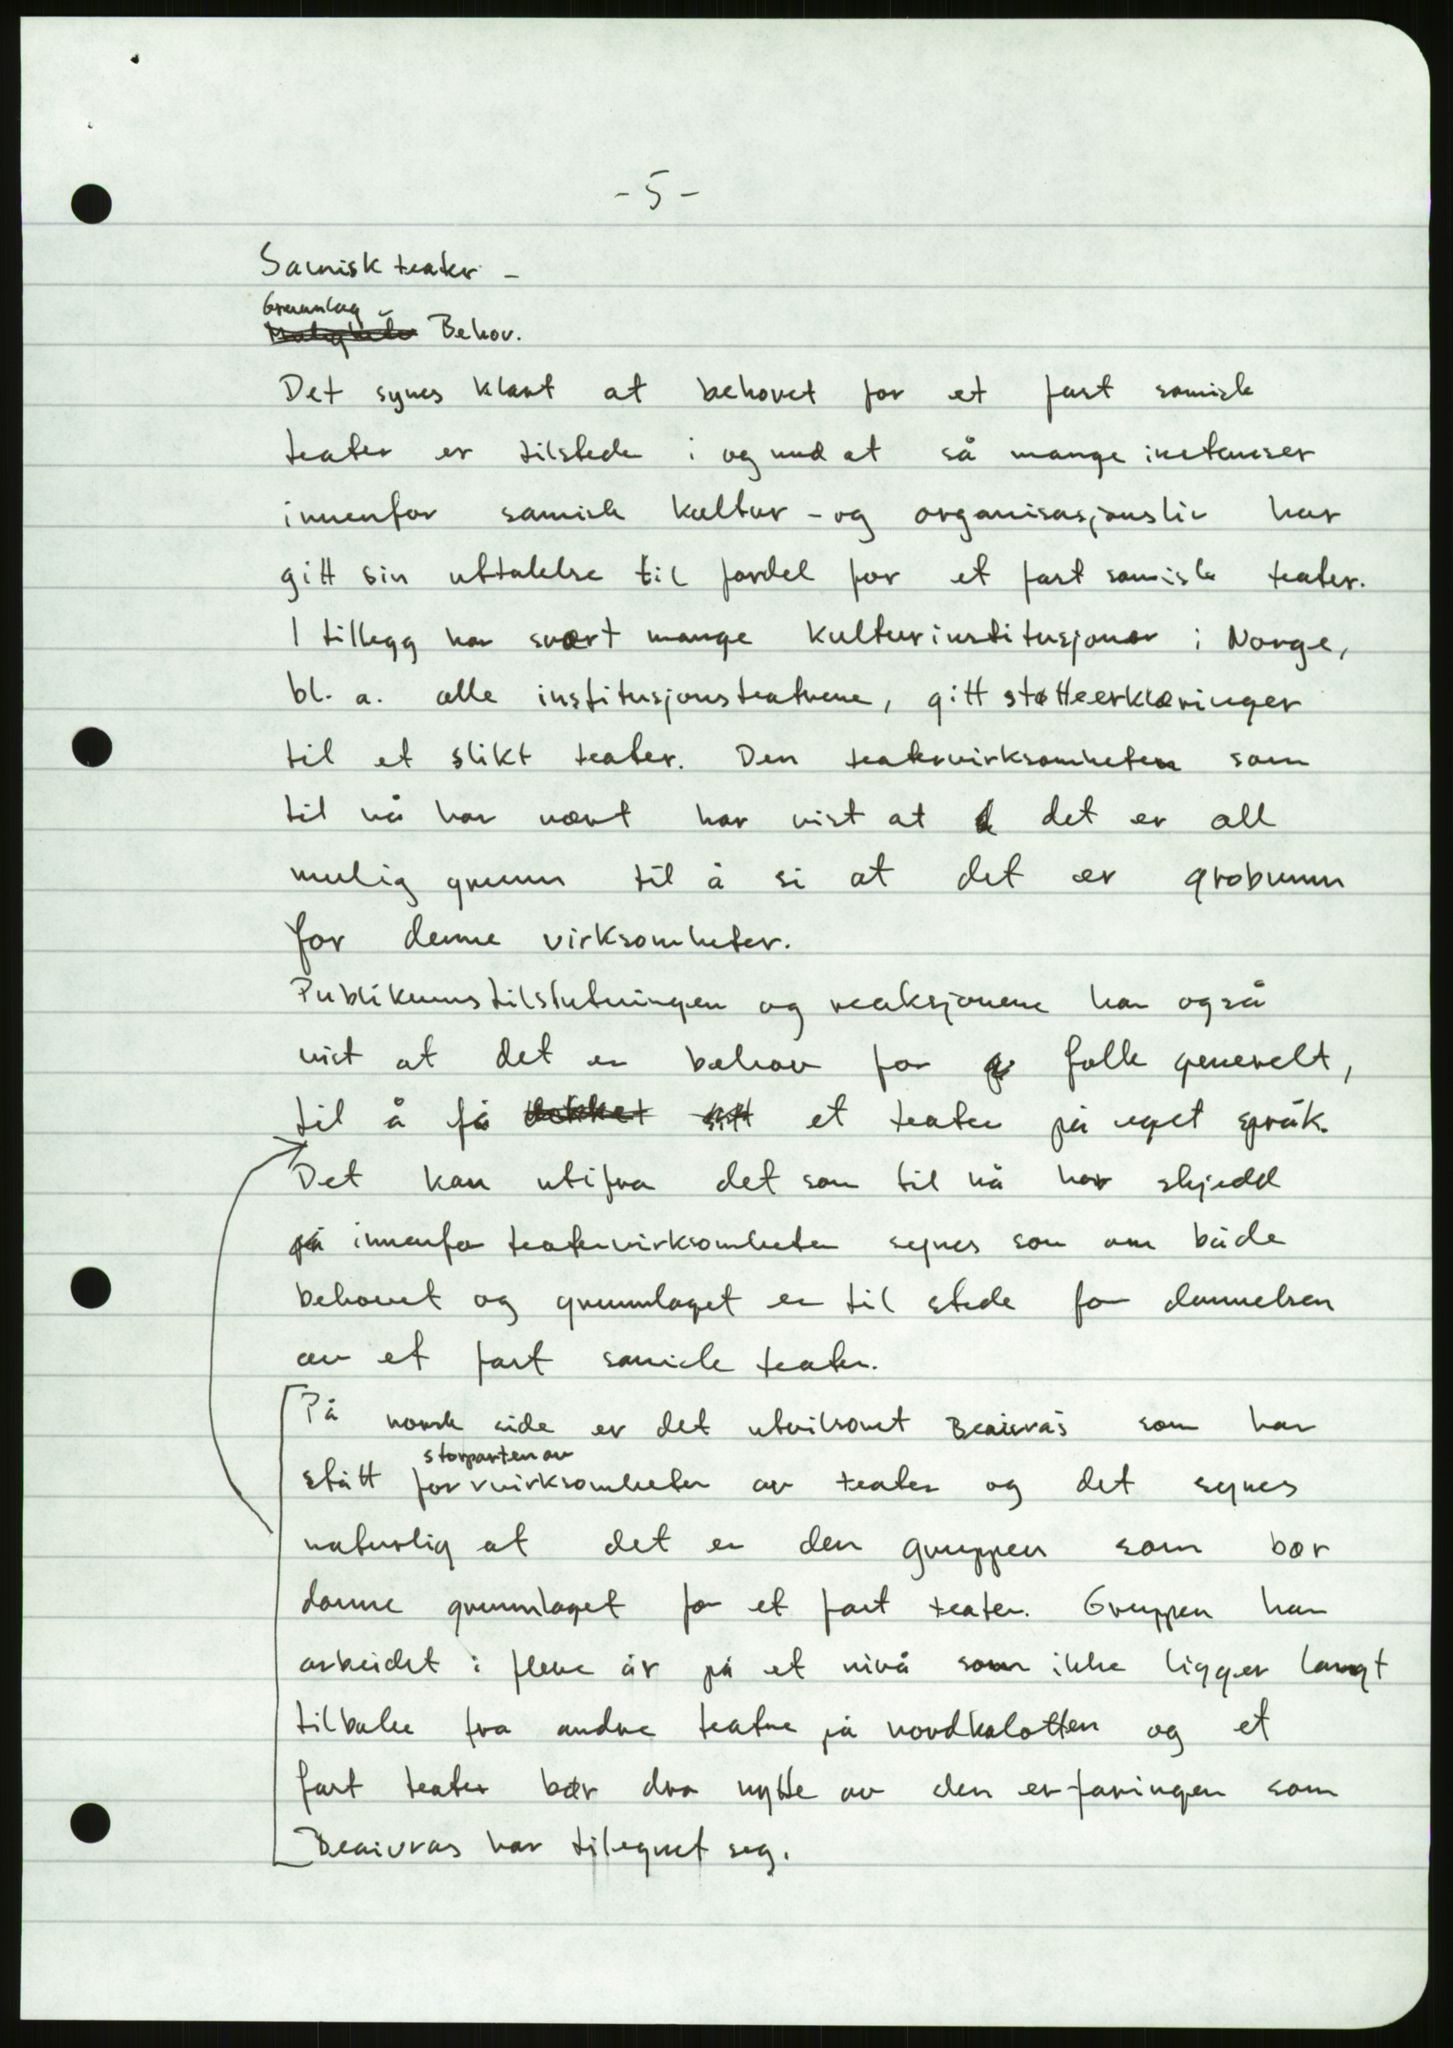 - 5 -
Samisk teater -
Grunnlag -
Behov.
Det synes klart at behovet for et fast samisk
teater er tilstede i og med at så mange instanser
innenfor samisk kultur - og organisasjonsliv har
gitt sin uttalelse til fordel for et fast samisk teater.
I tillegg har svært mange kulturinstitusjoner i Norge,
bl. a. alle institusjonsteatrene, gitt støtteerklæringer
til et slikt teater. Den teatervirksomheten som
til nå har vært har vist at det er all
mulig grunn til å si at det er grobunn
for denne virksomheten.
Publikumstilslutningen og reaksjonene har også
vist at det er behov for folk generelt,
til å få et teater på eget språk.
Det kan utifra det som til nå har skjedd
innenfor teatervirksomheten synes som om både
behovet og grunnlaget er til stede for dannelsen
av et fast samisk teater.
På norsk side er det utvilsomt Beaivváš som har
storparten av
stått for virksomheten av teater og det synes
naturlig at det er den gruppen som bør
danne grunnlaget for et fast teater. Gruppen har
arbeidet i flere år på et nivå som ikke ligger langt
tilbake fra andre teatre på nordkalotten og et
fast teater bør dra nytte av den erfaringen som
Beaivvas har tilegnet seg.